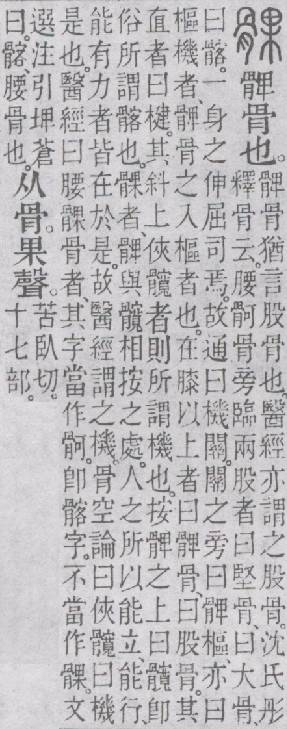 髁
髀骨也。
髀骨猶言股骨也。醫經亦謂之股骨。沈氏彤
釋骨云。腰䯊骨旁臨兩股者曰堅骨、曰大骨、
曰髂。一身之伸屈司焉。故通曰機關。關之旁曰髀樞。亦曰
樞機者、髀骨之入樞者也。在膝以上者曰髀骨、曰股骨。其
直者曰楗。其斜上俠髖者則所謂機也。按髀之上曰髖。即
俗所謂髂也。髁者、髀與髖相按之處。人之所以能立能行、
能有力者皆在於是。故醫經謂之機。骨空論曰俠髖曰機
是也。醫經曰腰髁骨者、其字當作䯊。卽髂字。不當作髁。文
選注引埤蒼
曰。髂腰骨也。
从骨。果聲。
苦臥切。
十七部。